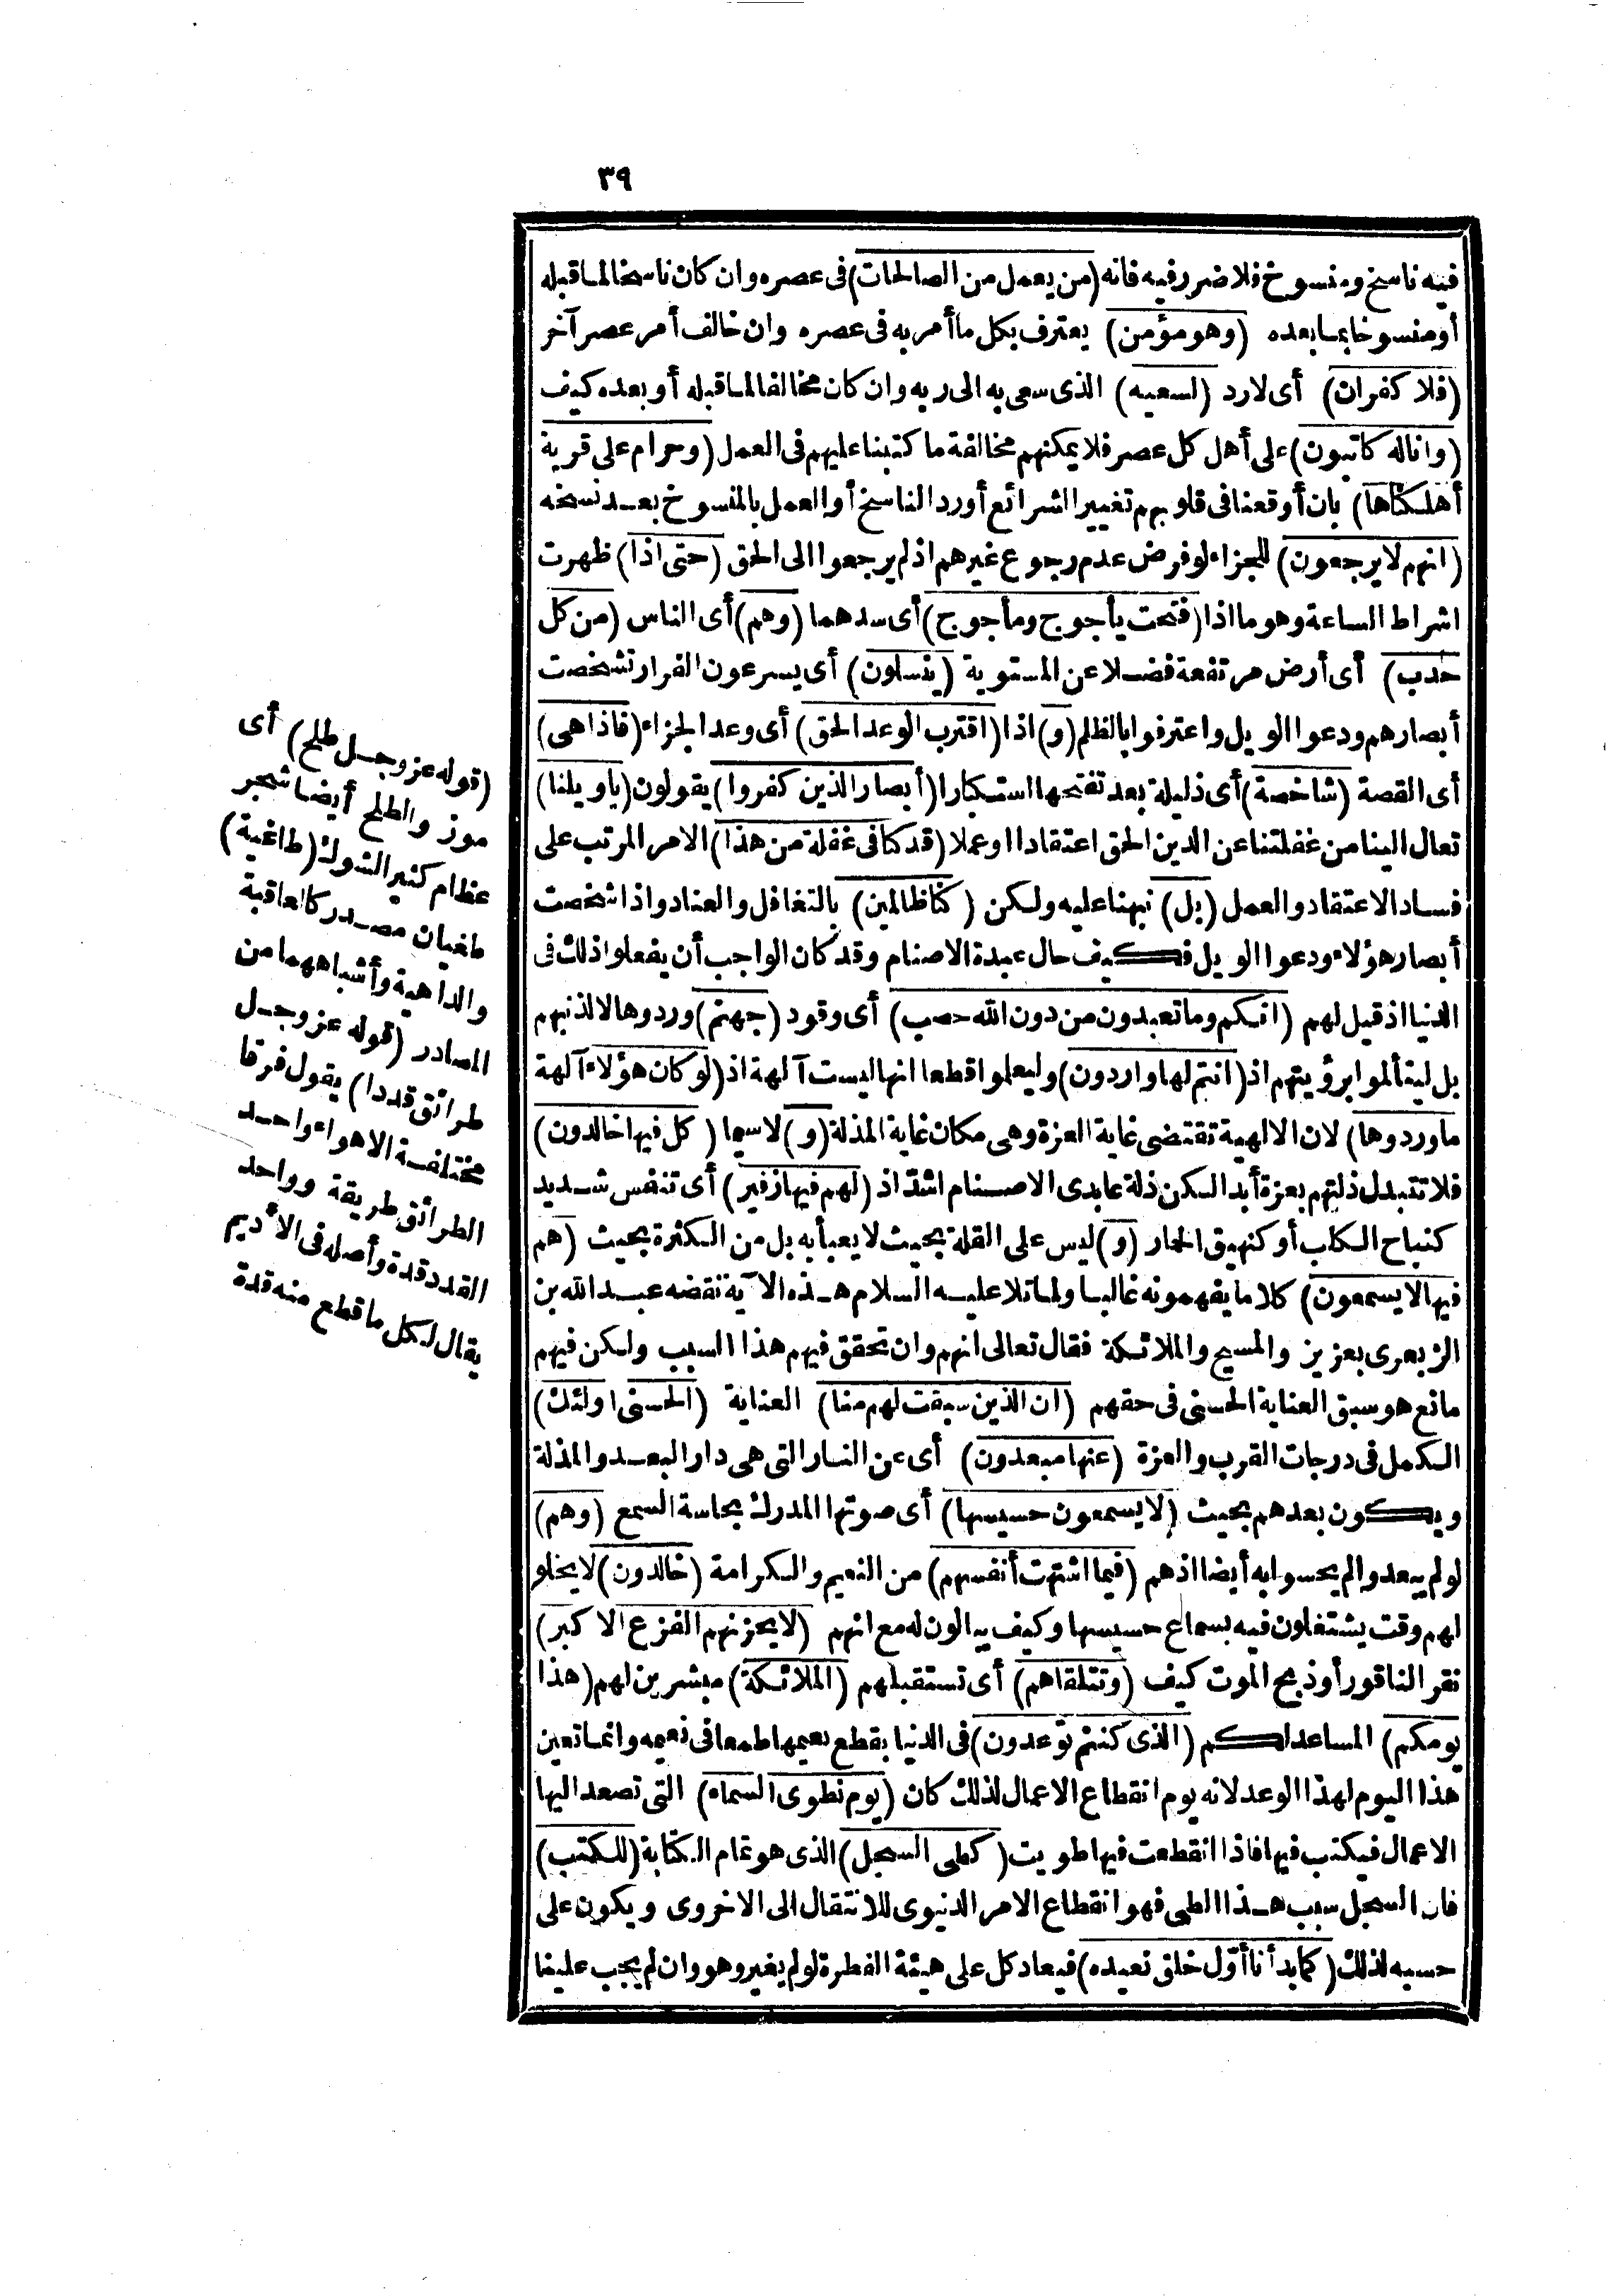 ٣٩
فيه ناسخ ومنسوخ فلا ضرر فيه فانه (من يعمل من الصالحات) فى عصره وان كان ناسخا لما قبله
أو منسوخا بما بعده (وهو مؤمن) يعترف بكل ما أمر به فى عصره وان خالف أمر عصر آخر
(فلا كفران) أى لارد (لسعيه) الذى سعى به الى ربه وان كان مخالفا لما قبله أو بعده كيف
(وانا له كاتبون) على أهل كل عصر فلا يمكنهم مخالفة ما كتبنا عليهم فى العمل (وحرام على قرية
أهلكناها) بان أوقعنا فى قلوبهم تغيير الشرائع أو رد الناسخ أو العمل بالمنسوخ بعد نسخه
(انهم لا يرجعون) للجزاء لو فرض عدم رجوع غيرهم اذ لم يرجعوا الى الحق (حتى اذا) ظهرت
اشراط الساعة وهو ما اذا (فتحت يأجوج ومأجوج) أى سدهما (وهم) أى الناس (من كل
حدب) أى أرض مرتفعة فضلا عن المستوية (ينسلون) أى يسرعون الفرار تشخصت
أبصارهم ودعوا الويل واعترفوا بالظلم (و) اذا (اقترب الوعد الحق) أى وعد الجزاء (فاذا هى)
أى القصة (شاخصة) أى ذليلة بعد تفتحها استكبارا (أبصار الذين كفروا) يقولون (ياويلنا)
تعال الينا من غفلتنا عن الدين الحق اعتقادا أو عملا (قد كنا فى غفلة من هذا) الامر المرتب على
فساد الاعتقاد والعمل (بل) نبهنا عليه ولكن (كنا ظالمين) بالتغافل والعناد واذا شخصت
أبصار هؤلاء ودعوا الويل فكيف حال عبدة الاصنام وقد كان الواجب أن يفعلوا ذلك فى
الدنيا اذ قيل لهم (انكم وما تعبدون من دون الله حصب) أى وقود (جهنم) وردوها لا لذنبهم
بل ليتألموا برؤيتهم اذ (انتم لها واردون) وليعلموا قطعا انها ليست آلهة اذ (لو كان هؤلاء آلهة
ما وردوها) لان الالهية تقتضى غاية العزة وهى مكان غاية المذلة (و) لا سيما (كل فيها خالدون)
فلا تتبدل ذلتهم بعزة أبدا لكن ذلة عابدى الاصنام اشد اذ (لهم فيها زفير) أى تنفس شديد
كنباح الكلب أو كنهيق الحمار (و) ليس على القلة بحيث لا يعبأ به بل من الكثرة بحيث (هم
فيها لا يسمعون) كلاما يفهمونه غالبا ولما تلا عليه السلام هذه الآية نقضه عبد الله بن
الزبعرى بعزيز والمسيح والملائكة فقال تعالى انهم وان تحقق فيهم هذا السبب ولكن فيهم
مانع هو سبق العناية الحسنى فى حقهم (ان الذين سبقت لهم منا) العناية (الحسنى اولئك)
الكمل فى درجات القرب والعزة (عنها مبعدون) أى عن النار التى هى دار البعد والمذلة
ويكون بعدهم بحيث (لا يسمعون حسيسها) أى صوتها المدرك بحاسة السمع (وهم)
لو لم يبعدوا لم يحسوا به أيضا اذ هم (فيما اشتهت أنفسهم) من النعيم والكرامة (خالدون) لا يخلو
لهم وقت يشتغلون فيه بسماع حسيسها وكيف يبالون له مع انهم (لا يحزنهم الفزع الاكبر)
نقر الناقور أو ذبح الموت كيف (وتتلقاهم) أى تستقبلهم (الملائكة) مبشرين لهم (هذا
يومكم) المساعد لكم (الذى كنتم توعدون) فى الدنيا بقطع نعيمها طمعا فى نعيمه وانما تعين
هذا اليوم لهذا الوعد لانه يوم انقطاع الاعمال لذلك كان (يوم نطوى السماء) التى تصعد اليها
الاعمال فيكتب فيها فاذا انقطعت فيها طويت (كطى السجل) الذى هو تمام الكتابة (للكتب)
فان السجل سبب هذا الطى فهو انقطاع الامر الدنيوى للانتقال الى الاخروى ويكون على
حسبه لذلك (كما بدأنا أول خلق نعيده) فيعاد كل على هيئة الفطرة لو لم يغير وهو وان لم يجب علينا
(قوله عز وجل طلح) أى
موز والطلح أيضا شجر
عظام كثير الشوك (طاغية)
طغيان مصدر كالعاقبة
والداهية وأشباههما من
المصادر (قوله عز وجل
طرائق قددا) يقول فرقا
مختلفة الاهواء واحد
الطرائق طريقة وواحد
القدد قدة وأصله فى الأديم
يقال لكل ما قطع منه قدة